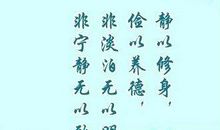 静以修身，
俭以养德，
非淡泊无以明
非宁静无以致